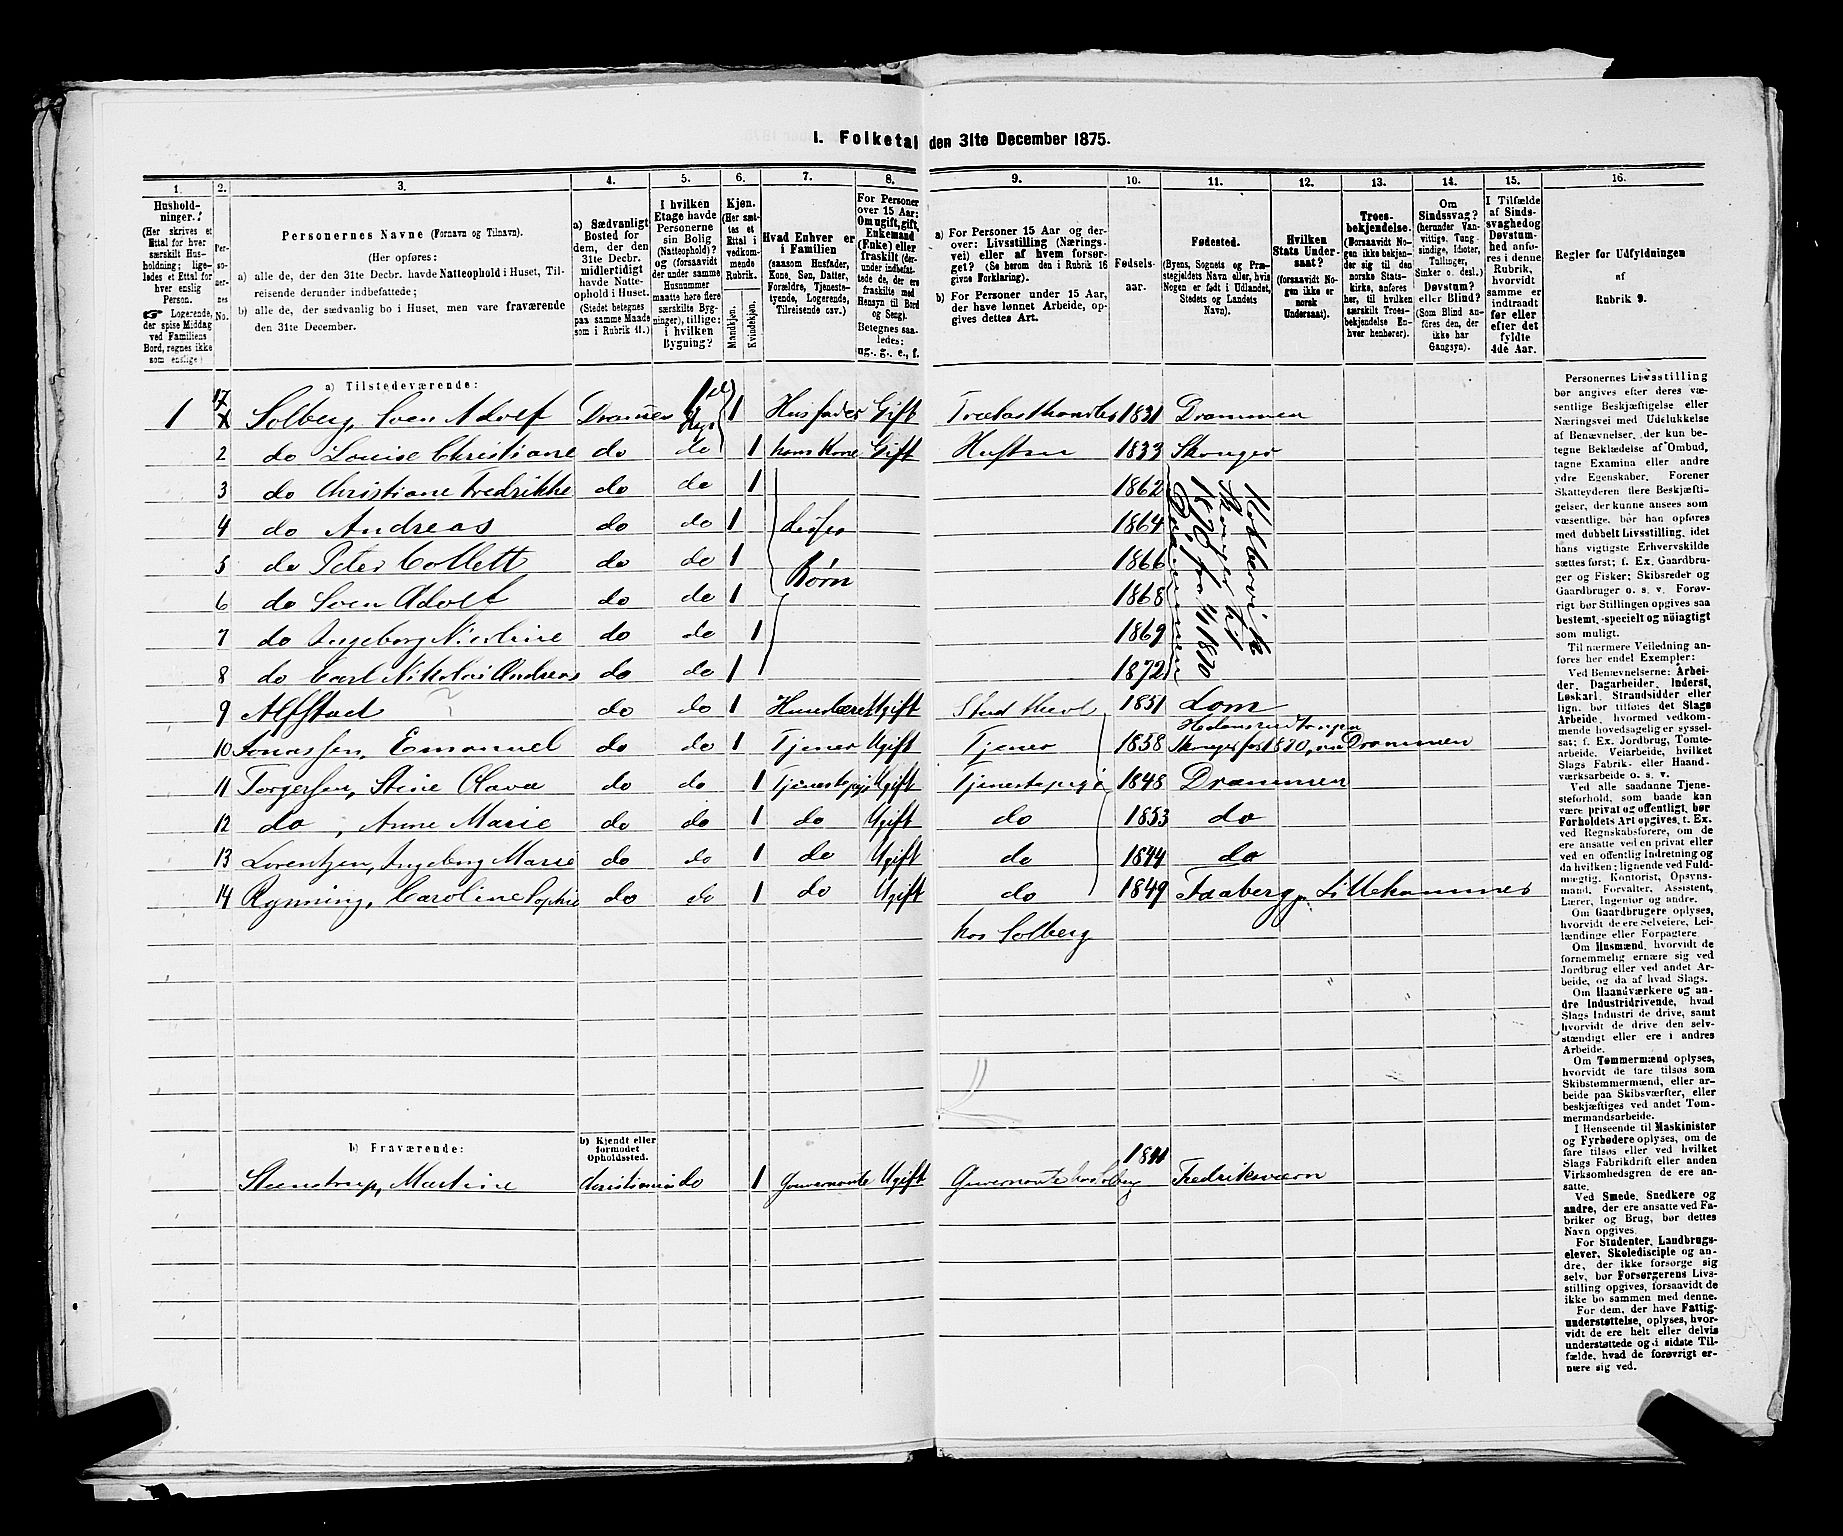 I. Folketal den 31te December 1875.
1. 2. 3. 4. 5. 6. 7. 8. 9. 10. 11. 12. 13. 14. 15. 16.
Hushold-
ninger.
(Her skrives et
Ettal for hver
særskilt Hus-
holdning; lige-
ledes et Ettal for
hver enslig
Person.
Logerende,
der spise Middag
ved Familiens
Bord, regnes ikke
som enslige)
Per-
so-
ner-
nes
No.
Personernes Navne (Fornavn og Tilnavn).
(Her opføres:
a) alle de, der den 31te Decbr. havde Natteophold i Huset, Til-
reisende derunder indbefattede;
b) alle de, der sædvanlig bo i Huset, men vare fraværende
den 31te December.
a) Sædvanligt
Bosted for
dem, der den
31te Decbr.
midlertidigt
havde Natte-
ophold i Huset.
(Stedet betegnes
paa samme Maade
som i Rubrik 11.)
I hvilken
Etage havde
Personerne
sin Bolig
(Natteophold)?
og (forsaavidt
det under samme
Husnummer
maatte høre flere
særskilte Byg-
ninger), tillige:
i hvilken
Bygning?
Kjøn.
(Her sæt-
tes et
Ettal i
vedkom-
mende
Rubrik.
Mandkjøn.
Kvindekjøn.
Hvad Enhver er
i Familien
(saasom Husfader,
Kone, Søn, Datter,
Forældre, Tjeneste-
tyende, Logerende,
Tilreisende osv.)
For Personer
over 15 Aar:
Om ugift, gift,
Enkemand
(Enke) eller
fraskilt (der-
under indbefat-
tede de, der ere
fraskilte med
Hensyn til Bord
og Seng).
Betegnes saa-
ledes:
ug., g., e., f.
a) For Personer 15 Aar og der-
over: Livsstilling (Nærings-
vei) eller af hvem forsør-
get? (Se herom den i Rubrik 16
givne Forklaring).
b) For Personer under 15 Aar,
der have lønnet Arbeide, op-
gives dettes Art.
Fødsels-
aar.
Fødested.
(Byens, Sognets og Præ-
stegjeldets Navn eller, hvis
Nogen er født i Udlandet,
Stedets og Landets
Navn).
Hvilken
Stats Under-
saat?
(forsaavidt No-
gen ikke er
norsk
Undersaat).
Troes-
bekjendelse.
(Forsaavidt No-
gen ikke bekjen-
der sig til den
norske Stats-
kirke, anføres
her, til hvilken
særskilt Troes-
bekjendelse En-
hver henhører).
Om
Sindssvag?
(herunder Van-
vittige, Tung-
sindige, Idioter,
Tullinger,
Sinker o. desl.)
Døvstum?
eller Blind?
(Som Blind an-
føres den, der
ikke har
Gangsyn).
I Tilfælde
af Sinds-
svaghed og
Døvstum-
hed anfø-
res i denne
Rubrik,
hvorvidt
samme er
indtraadt
før eller
efter det
fyldte
4de Aar.
Regler for Udfyldningen
af
Rubrik 9.
a) Tilstedeværende:
1 Solberg, Sven Adolf Drammen 1 Husfader Gift 1831 Drammen
2 do Louise Christiane do do 1 hans Kone Gift Hustru 1833 Skonger
3 do Christiane Fredrikke do do 1 1862
4 do Andreas do do 1 disses 1864
5 do Peter Collett do do 1 Børn 1866
6 do Sven Adolf do do 1 1868
7 do Ingeborg Nicoline do do 1 1869
8 do Carl Nikolai Andreas do do 1 1872
9 Alfstad ? do do 1 Ugift 1851 Lom
10 Jonassen, Emanuel do do 1 Tjener Ugift Tjener 1858 Drammen
11 Torgersen, Stine Olava do do 1 Tjenestepige Ugift Tjenestepige 1848 Drammen
12 do, Anne Marie do do 1 do Ugift do 1853 do
13 Lorentzen, Ingeborg Marie do do 1 do Ugift do 1844 do
14 Rynning, Caroline Sophie do do 1 do Ugift do 1849 Faaberg p. Lillehammer
hos Solberg
b) Fraværende:
b) Kjendt eller
formodet
Opholdssted.
Steenstrup, Martine Christiania do 1 Gouvernante Ugift Guvernante hos Solberg 1840 Fredriksværn
Personernes Livsstilling
bør angives efter deres væ-
sentlige Beskjæftigelse eller
Næringsvei med Udelukkelse
af Benævnelser, der kun be-
tegne Beklædelse af Ombud,
tagne Examina eller andre
ydre Egenskaber. Forener
Skatteyderen flere Beskjæfti-
gelser, der kunne ansees som
væsentlige, bør han opføres
med dobbelt Livsstilling, idet
hans vigtigste Erhvervskilde
sættes først; f. Ex. Gaardbru-
ger og Fisker; Skibsreder og
Gaardbruger o. s. v. Forøv-
rigt bør Stillingen opgives saa
bestemt, specielt og nøiagtigt
som muligt.
Til nærmere Veiledning an-
føres her endel Exempler:
Ved Benævnelserne: Arbei-
der, Dagarbeider, Inderst,
Løskarl, Strandsidder eller
lign. bør tilføies det Slags
Arbeide, hvormed vedkom-
mende hovedsagelig er syssel-
sat; f. Ex. Jordbrug, Tomte-
arbeide, Veiarbeide, hvilket
Slags Fabrik- eller Haand-
værksarbeide o. s. v.
Ved alle saadanne Tjene-
steforhold, som baade kan
være privat og offentligt, bør
Forholdets Art opgives, t. Ex.
ved Regnskabsførere, om de
ere ansatte ved en privat eller
ved en offentlig Indretning og
da hvilken; lignende ved Fuld-
mægtig, Kontorist, Opsyns-
mand, Forvalter, Assistent,
Lærer, Ingeniør og andre.
Om Gaardbrugere oplyses,
hvorvidt de ere Selveiere, Lei-
lændinge eller Forpagtere.
Om Husmænd, hvorvidt de
fornemmelig ernære sig ved
Jordbrug eller ved andet Ar-
beide, og da af hvad Slags.
Om Haandværkere og an-
dre Industridrivende, hvad
Slags Industri de drive, samt
hvorvidt de drive den selv-
stændigt eller ere i andres
Arbeide.
Om Tømmermænd oplyses,
hvorvidt de fare tilsøs som
Skibstømmermænd, eller ar-
beide paa Skibsværfter, eller
beskjæftiges ved andet Tøm-
mermandsarbeide.
I Henseende til Maskinister
og Fyrbødere oplyses, om de
fare tilsøs eller ved hvilket
Slags Fabrikdrift eller anden
Virksomhedsgren de ere an-
satte.
Ved Smede, Snedkere og
andre, der ere ansatte ved Fa-
briker og Brug, bør dettes
Navn opgives.
For Studenter, Landbrugs-
elever, Skoledisciple og an-
dre, der ikke forsørge sig
selv, bør Forsørgerens Livs-
stilling opgives, forsaavidt de
ikke bo sammen med denne.
For dem, der have Fattig-
understøttelse, oplyses, hvor-
vidt de ere helt eller delvis
understøttede og i sidste Til-
fælde, hvad de forøvrigt er-
nære sig ved.